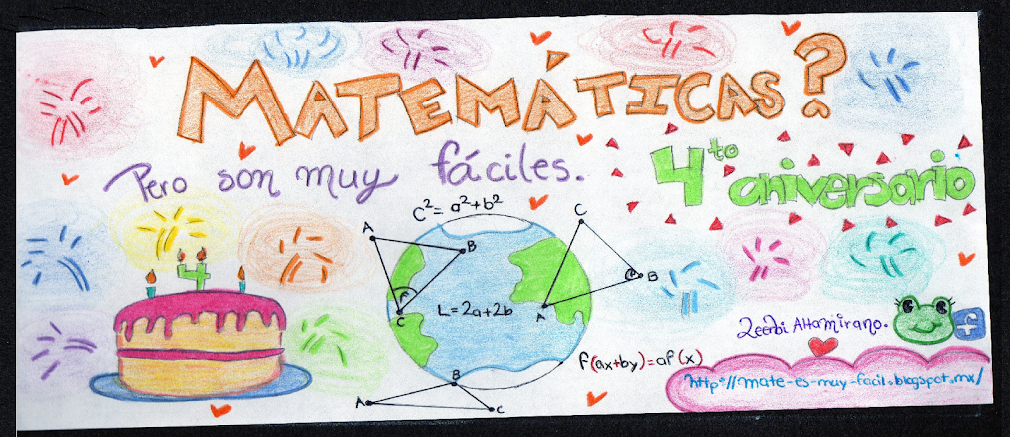 MATEMÁTICAS?
Pero son muy fáciles.
4to aniversario
C²= a²+b²
A
B
C
C
B
A
L=2a+2b
4
Altamirano.
f
f(ax+by)=af(x)
http://mate-es-muy-facil.blogspot.mx/
B
A
C